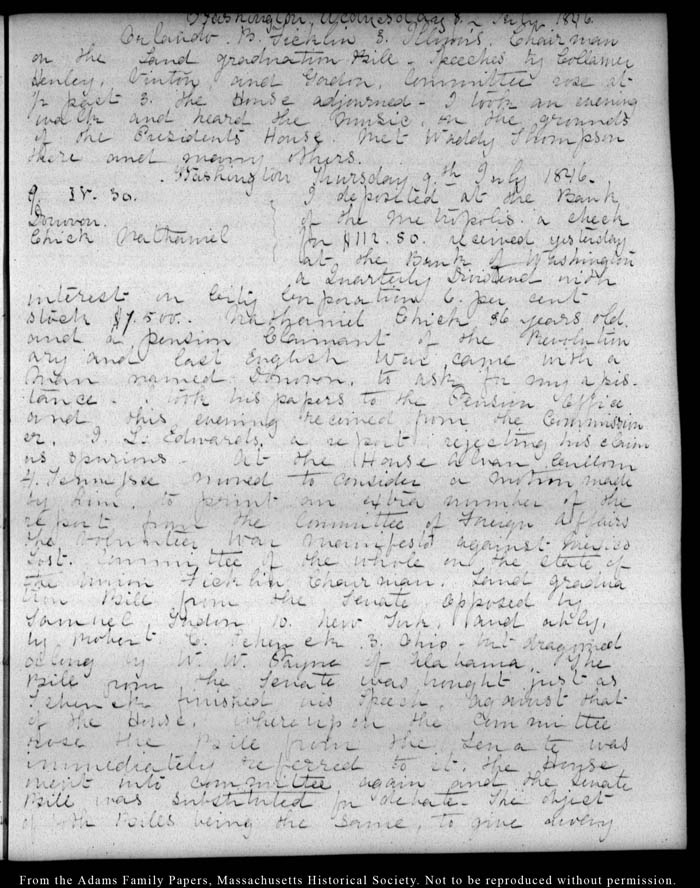 Washington, Wednesday 8. July 1846.
Orlando B. Ficklin 3. Illinois. Chairman
on the Land graduation Bill - Speeches by Collamer
Henley, Vinton, and Gordon, Committee rose at
1/2 past 3. the House adjourned - I took an evening
walk and heard the Music, in the grounds
of the Presidents House. Met Waddy Thompson
there and many others.
Washington Thursday 9th July 1846.
9. IV. 30. I deposited at the Bank
Donovon. of the Metropolis a check
Chick Nathaniel for $112.50. received yesterday
at the Bank of Washington
a Quarterly Dividend with
interest on City Corporation 6. per cent
stock $7.500. Nathaniel Chick 86 years old.
and a pension Claimant of the Revolution
ary and last English War came with a
Man named Donovon, to ask for my assis-
tance - I took his papers to the Pension Office
and this evening received from the Commission
er. J. L. Edwards, a report rejecting his claim
as spurious - At the House Alvan Cullom
4. Tennessee moved to consider a motion made
by him, to print an extra number of the
report from the Committee of Foreign Affairs
the Volunteer War Manifesto against Mexico
lost. Committee of the whole on the state of
the Union Ficklin Chairman. Land gradua
tion Bill from the Senate, opposed by
Samuel Gordon 10. New York, and ably,
by Robert C. Schenck 3. Ohio - but dragooned
along by W. W. Payne of Alabama. The
Bill from the Senate was brought just as
Schenck finished his speech, against that
of the House, whereupon the Committee
rose the Bill from the Senate was
immediately referred to it, the House
went into committee again and the Senate
Bill was substituted for debate - The object
of both Bills being the same, to give away
From the Adams Family Papers, Massachusetts Historical Society. Not to be reproduced without permission.